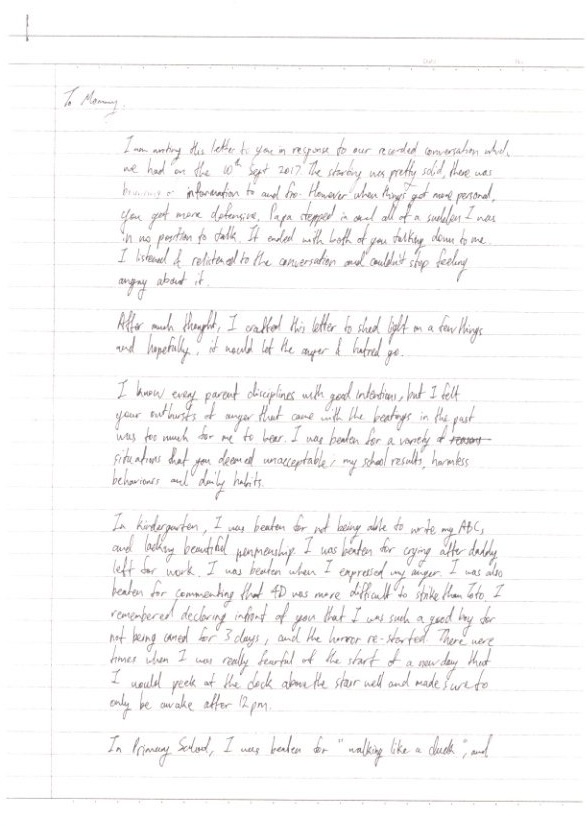 To Mommy,
I am writing this letter to you in response to our recorded conversation which
we had on the 10th Sept 2017. The starting was pretty solid, there was
information to and fro. However when things got more personal,
you got more defensive, Papa stepped in and all of a sudden I was
in no position to talk. It ended with both of you talking down to me.
I listened & relistened to the conversation and couldn't stop feeling
angry about it.
After much thought, I crafted this letter to shed light on a few things
and hopefully, it would let the anger & hatred go.
I know every parent disciplines with good intentions, but I felt
your outbursts of anger that came with the beatings in the past
was too much for me to bear. I was beaten for a variety of reasons
situations that you deemed unacceptable; my school results, harmless
behaviours and daily habits.
In kindergarten, I was beaten for not being able to write my ABCs,
and lacking beautiful penmenship. I was beaten for crying after daddy
left for work. I was beaten when I expressed my anger. I was also
beaten for commenting that 4D was more difficult to strike than Toto. I
remembered declaring infront of you that I was such a good boy for
not being caned for 3 days, and the horror re-started. There were
times when I was really fearful of the start of a new day that
I would peek at the clock above the stair well and made sure to
only be awake after 12pm.
In Primary School, I was beaten for "walking like a duck", and